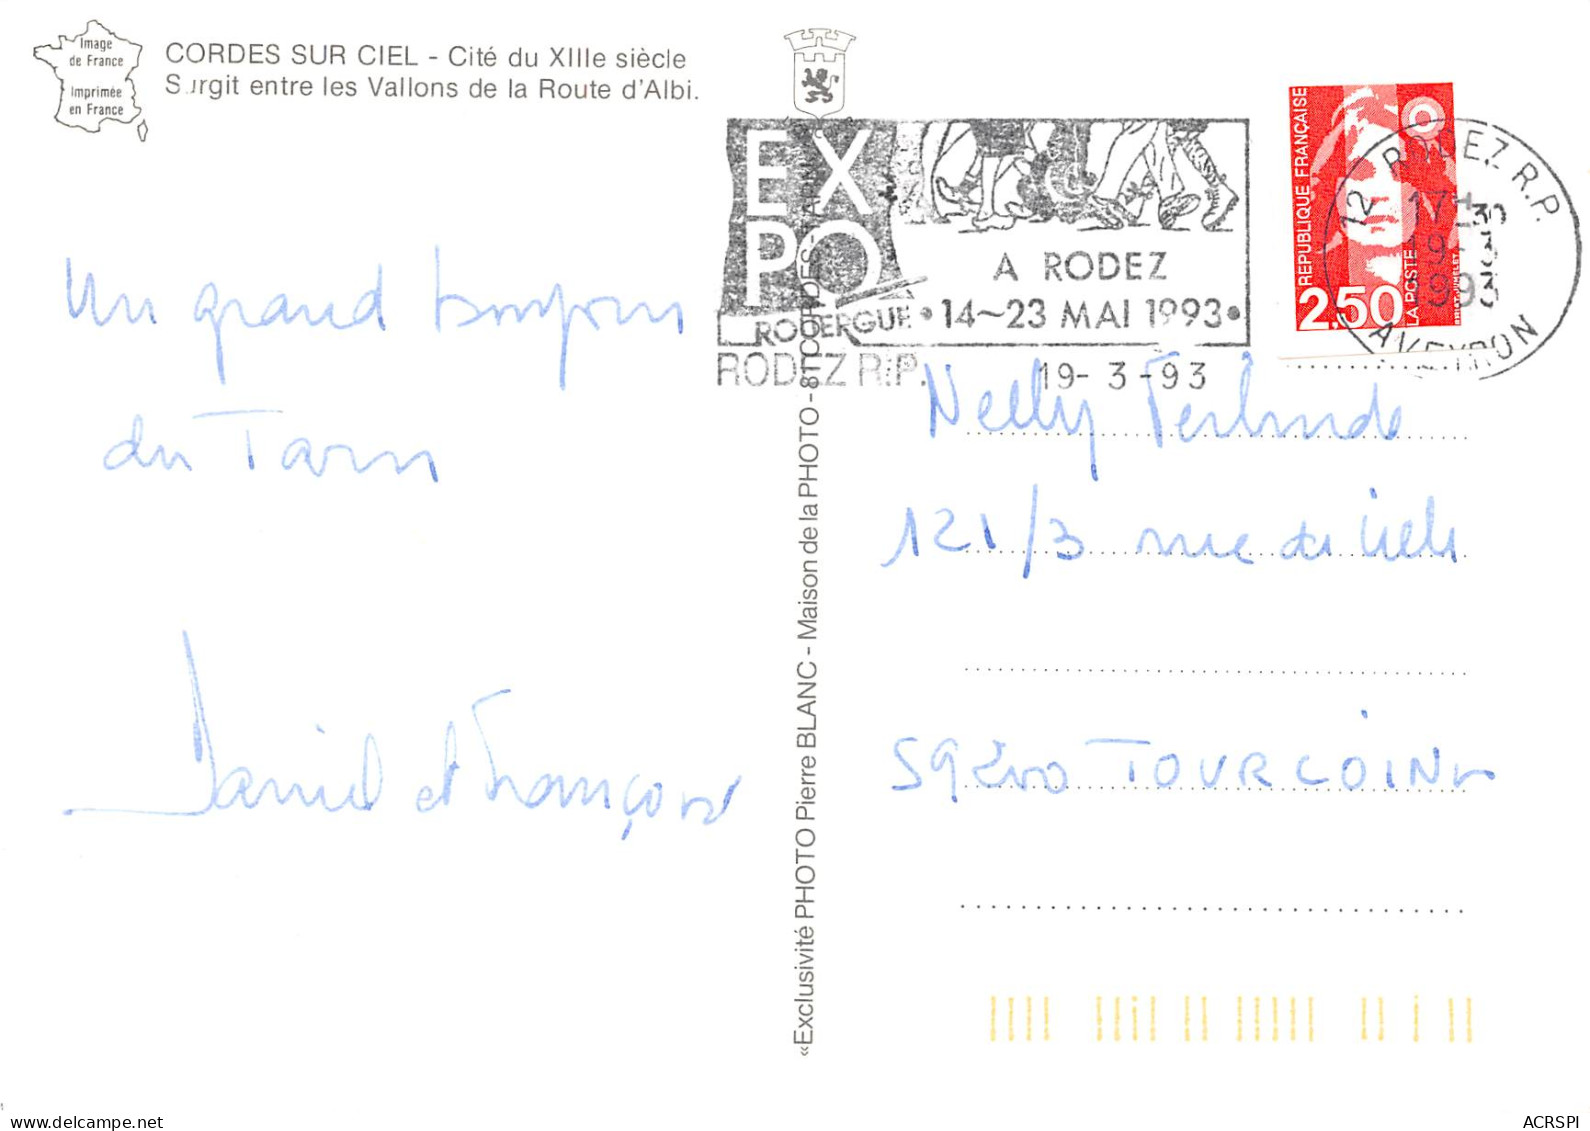 Image
de France
Imprimée
en France
CORDES SUR CIEL - Cité du XIIIe siècle
Surgit entre les Vallons de la Route d'Albi.
Un grand bonjour
du Tarn
Daniel et Françoise
«Exclusivité PHOTO Pierre BLANC - Maison de la PHOTO - 81 CORDES - TARN
EXPO
ROUERGUE
A RODEZ
• 14~23 MAI 1993 •
RODEZ R.P.
19-3-93
RÉPUBLIQUE FRANÇAISE
LA POSTE
2,50
12 RODEZ R.P.
17H30
19-3
1993
AVEYRON
Nelly
121/3 rue de
59200 TOURCOING
www.delcampe.net
ACRSPI